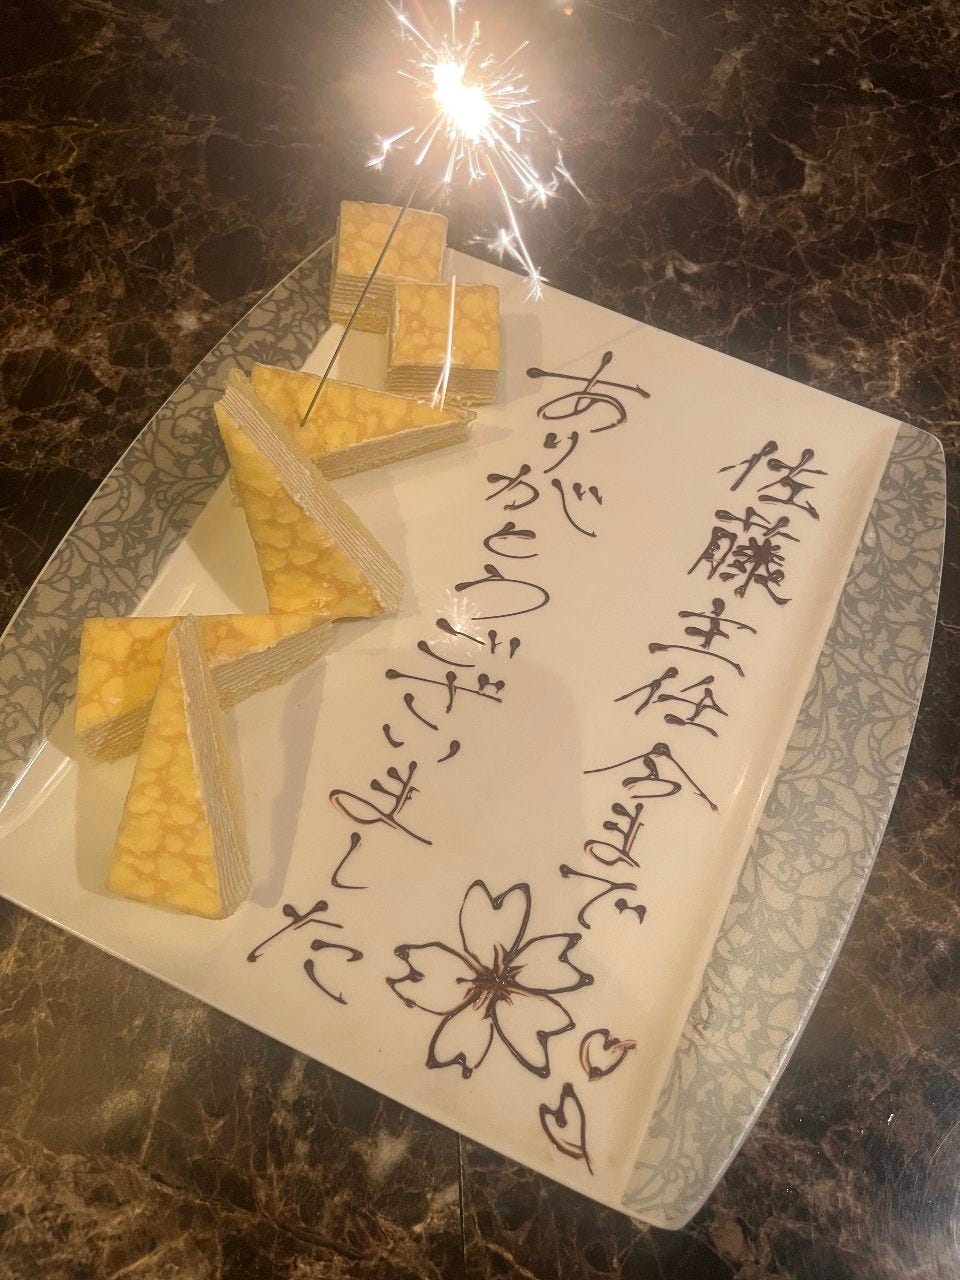 佐藤主任今まで
ありがとうございました